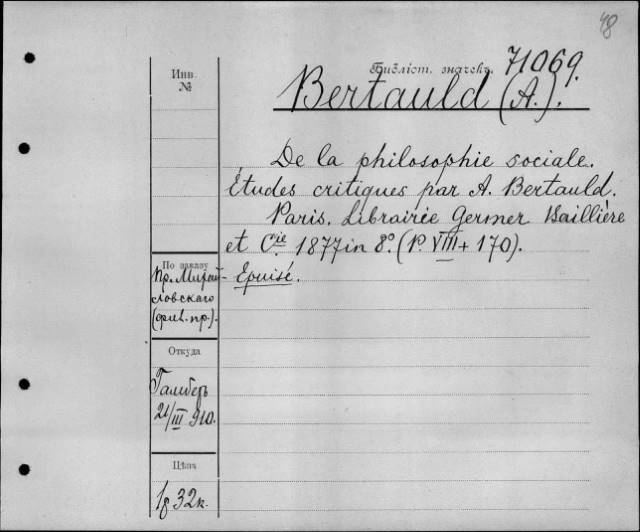 48
Библіот. значекъ. 71069.
Инв.
№
Bertauld (A.).
De la philosophie sociale.
Études critiques par A. Bertauld.
Paris. Librairie Germer Baillière
et Cie. 1877 in 8º. (P. VIII + 170).
По заказу
Пр. Михай-
ловскаго
(фил. пр.).
Epuisé.
Откуда
21/III 910.
Цѣна
1 р 32 к.